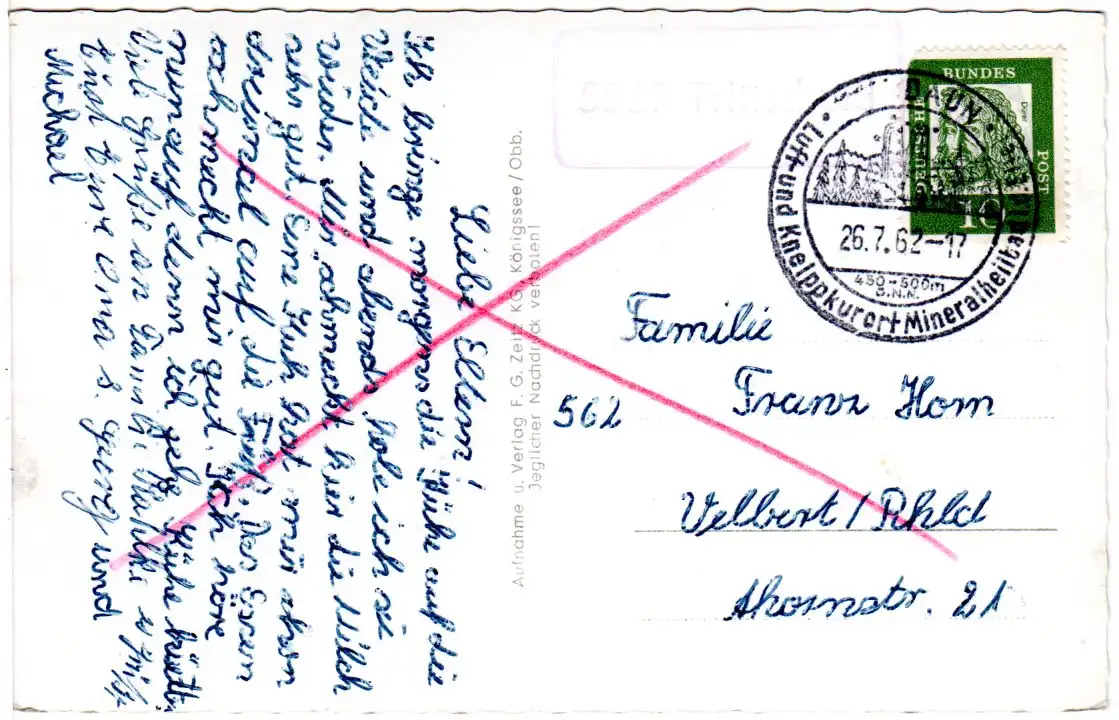 Liebe Eltern!
Ich bringe morgens die Kühe auf die
Weide und abends hole ich sie
wieder. Mir schmeckt hier die Milch
sehr gut. Eine Kuh hat mir schon
dreimal auf die getreten. Das Essen
schmeckt mir gut. Ich höre
nun auf, denn ich gehe Kühe hüten.
Viel Grüße an
und Eure Oma s. und
Michael
Aufnahme u. Verlag F. G. Zeitz KG., Königssee/Obb.
Jeglicher Nachdruck verboten!
BUNDES
POST
Dürer
10
DAUN
Luft- und Kneippkurort Mineralheilbad
26.7.62-17
450-500m
ü.N.N.
Familie
Franz Horn
562
Velbert/Rhld
Ahornstr. 21